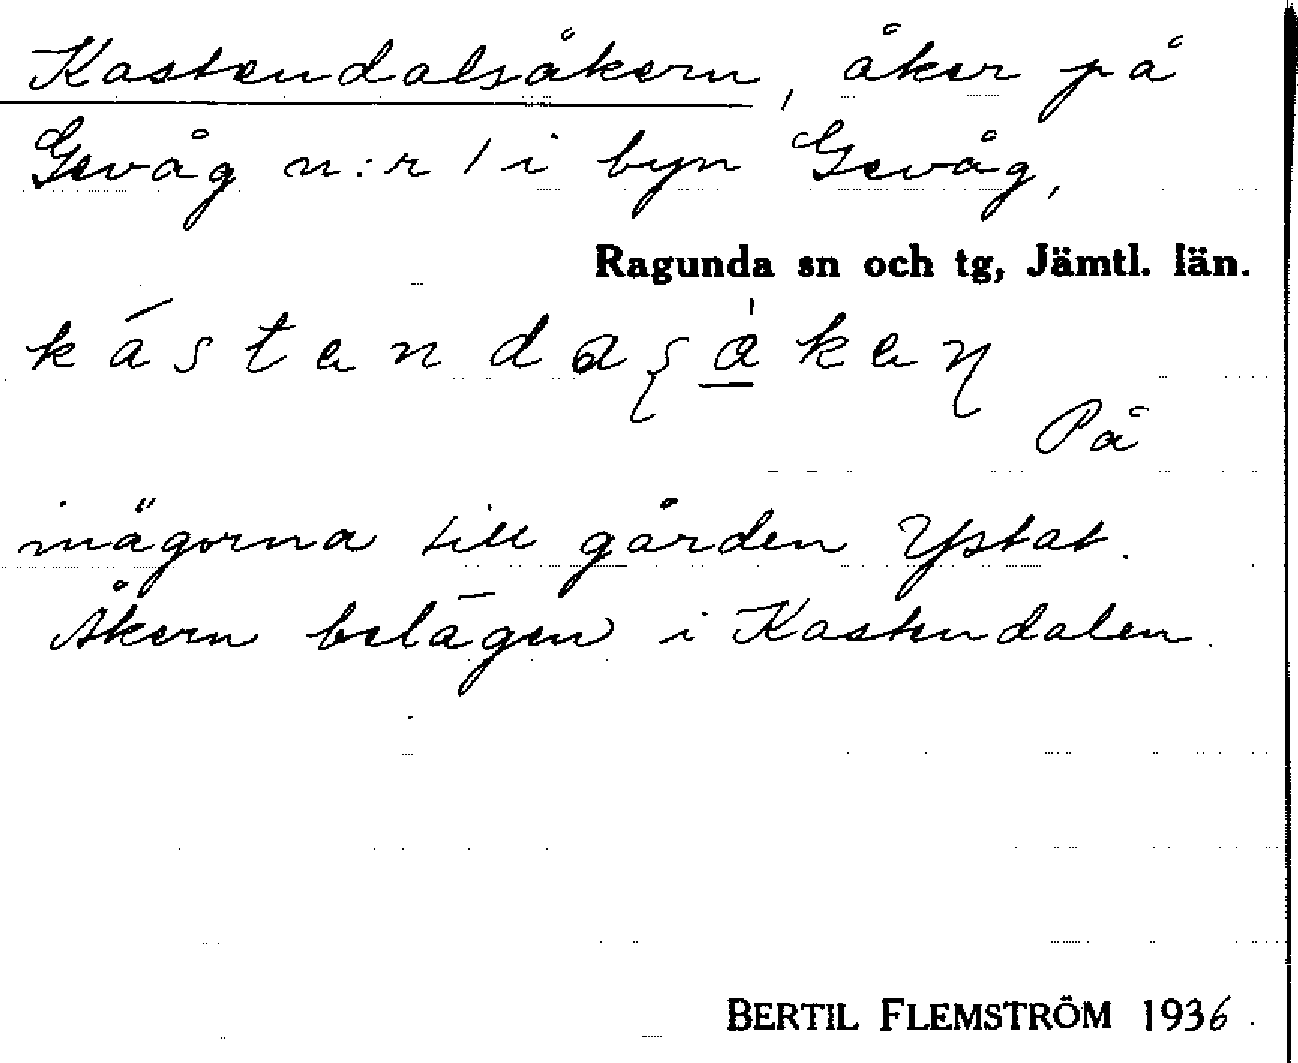 Kastendalsåkern, åker på
Gevåg n:r 1 i byn Gevåg,
Ragunda sn och tg, Jämtl. län.
kástandaʂàkaɳ
På
inägorna till gården Ystat.
Åkern belägen i Kastendalen.
BERTIL FLEMSTRÖM 1936.